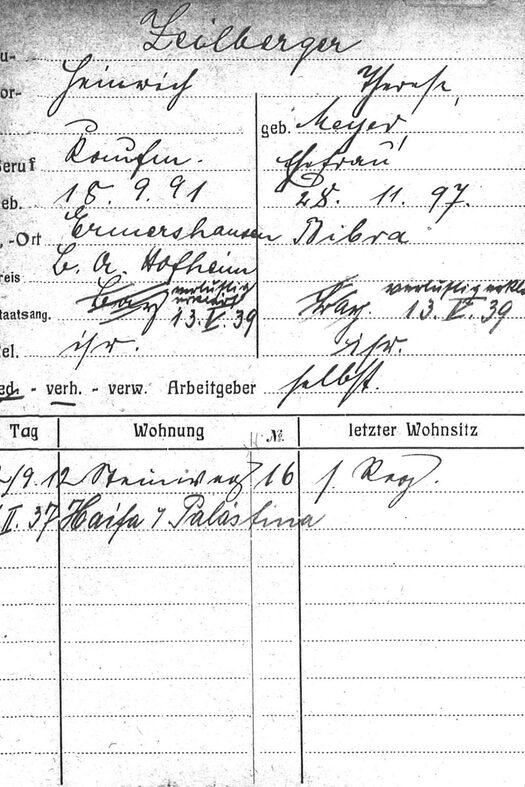 u- Zeilberger
or- Heinrich Therese,
geb. Meyer,
Beruf Kaufm. Ehefrau
eb. 18. 9. 91 28. 11. 97.
, -Ort Ermershausen Bibra
reis B. A. Hofheim
taatsang. Bay verlustig erklärt 13. V. 39 Bay. verlustig erkl 13. V. 39
el. isr. isr.
ed. - verh. - verw. Arbeitgeber selbst.
Tag Wohnung № letzter Wohnsitz
/9. 12 Steinweg 16 / Reg.
II. 37 Haifa / Palästina